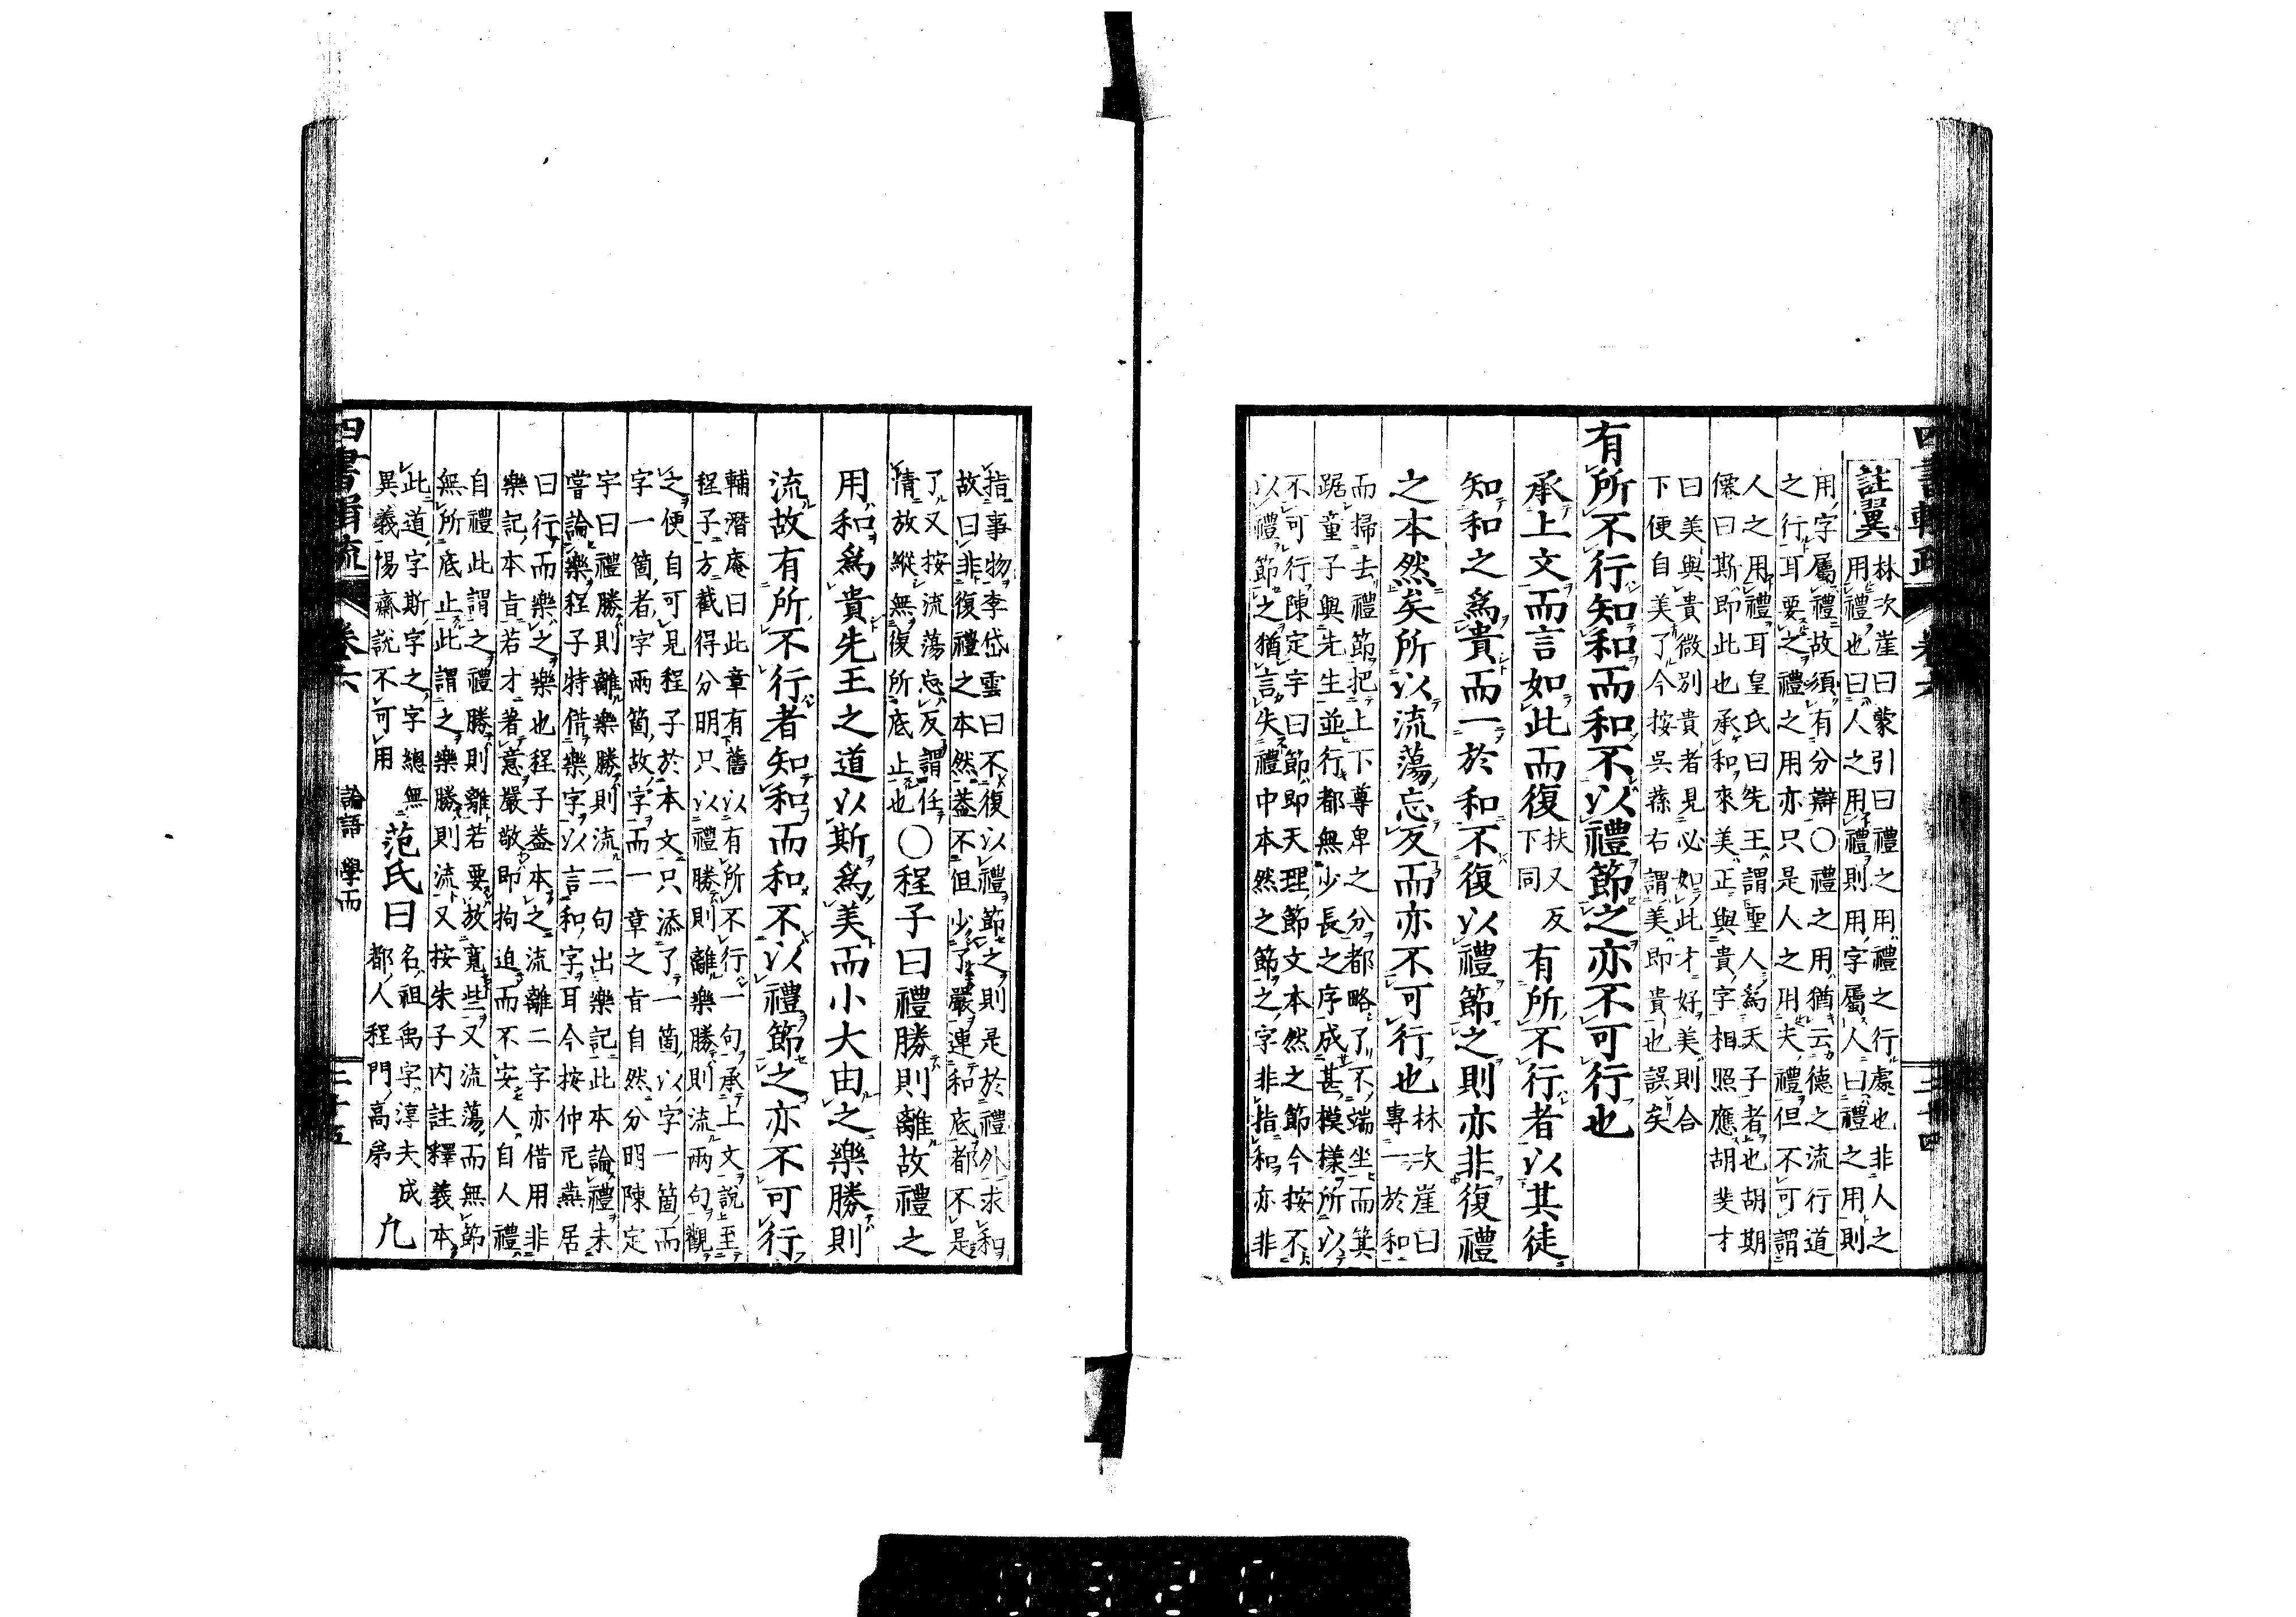 四書輯疏 卷六 三十四
註翼 林次崖曰蒙引曰禮之用禮之行處也非人之
用禮也曰人之用禮則用字屬人曰禮之用則
用字屬禮故須有分辯○禮之用猶云德之流行道
之行耳要之禮之用亦只是人之用夫禮但不可謂
人之用禮耳皇氏曰先王謂聖人爲天子者也胡期
僊曰斯即此也承和來美正與貴字相照應胡斐才
曰美與貴微別貴者見必如此才好美則合
下便自美了今按吳蓀右謂美即貴也誤矣
有所不行知和而和不以禮節之亦不可行也
承上文而言如此而復扶又反下同有所不行者以其徒
知和之爲貴而一於和不復以禮節之則亦非復禮
之本然矣所以流蕩忘反而亦不可行也林次崖曰專一於和
而掃去禮節把上下尊卑之分都略了不端坐而箕
踞童子與先生並行都無少長之序成甚模樣所以
不可行陳定字曰節即天理節文本然之節今按不
以禮節之猶言失禮中本然之節之字非指和亦非
指事物李岱雲曰不復以禮節之則是於禮外求和
故曰非復禮之本然蓋不但少了嚴連和底都不是
了又按流蕩忘反謂任
情放縱無復所底止也○程子曰禮勝則離故禮之
用和爲貴先王之道以斯爲美而小大由之樂勝則
流故有所不行者知和而和不以禮節之亦不可行
輔潛庵曰此章有舊以有所不行一句承上文說至
程子方截得分明只以禮勝則離樂勝則流兩句觀
之便自可見程子於本文只添了一箇以字一箇而
字一箇者字兩箇故字而一章之旨自然分明陳定
字曰禮勝則離樂勝則流二句出樂記此本論禮未
嘗論樂程子特借樂字以言和字耳今按仲尼燕居
曰行而樂之樂也程子蓋本之流離二字亦借用非
樂記本旨若才著意嚴敬即拘迫而不安人自人禮
自禮此謂之禮勝則離若要放寬些又流蕩而無節
無所底止此謂之樂勝則流又按朱子内註釋義本
此道字斯字之字總無
異義惕齋說不可用 范氏曰名祖禹字淳夫成都人程門高弟 凡
四書輯疏 卷六 論語 學而 三十五